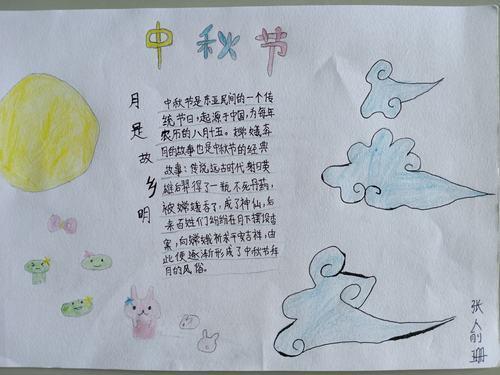 中秋节
月是故乡明
中秋节是东亚民间的一个传
统节日，起源于中国，为每年
农历的八月十五。嫦娥奔
月的故事也是中秋节的经典
故事：传说远古时代射日英
雄后羿得了一瓶不死丹药，
被嫦娥吞了，成了神仙，后
来百姓们纷纷在月下摆设香
案，向嫦娥祈求平安吉祥，由
此便逐渐形成了中秋节拜
月的风俗。
张人俞珊